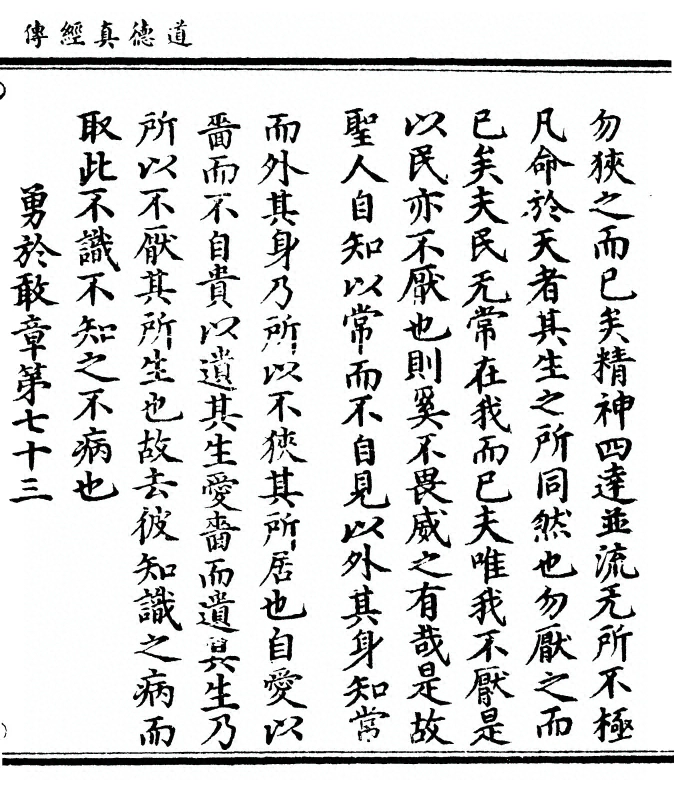 道德真經傳
勿狹之而已矣精神四達並流无所不極
凡命於天者其生之所同然也勿厭之而
已矣夫民无常在我而已夫唯我不厭是
以民亦不厭也則奚不畏威之有哉是故
聖人自知以常而不自見以外其身知常
而外其身乃所以不狹其所居也自愛以
嗇而不自貴以遺其生愛嗇而遺其生乃
所以不厭其所生也故去彼知識之病而
取此不識不知之不病也
勇於敢章第七十三